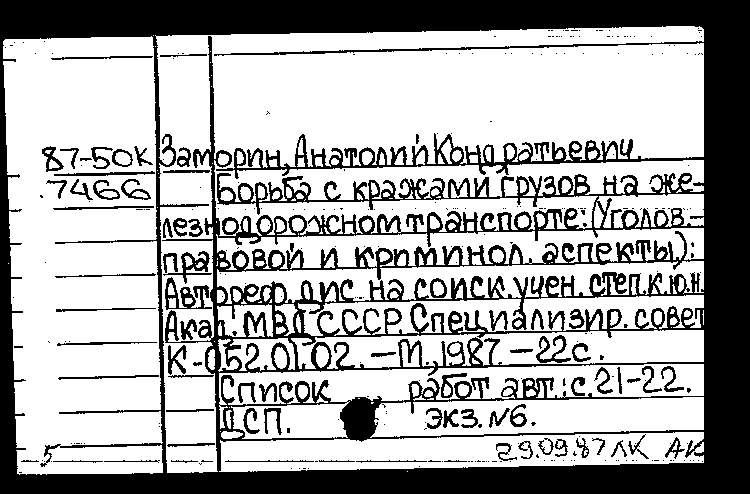 87-50К Заморин, Анатолий Кондратьевич.
7466 Борьба с кражами грузов на же-
лезнодорожном транспорте: (Уголов.-
правовой и криминол. аспекты):
Автореф. дис на соиск. учен. степ. к.ю.н.
Акад. МВД СССР. Специализир. совет
К-052.01.02. - М., 1987. - 22с.
Список работ авт.: с. 21-22.
ДСП. экз. №6.
29.09.87 ЛК АК
5